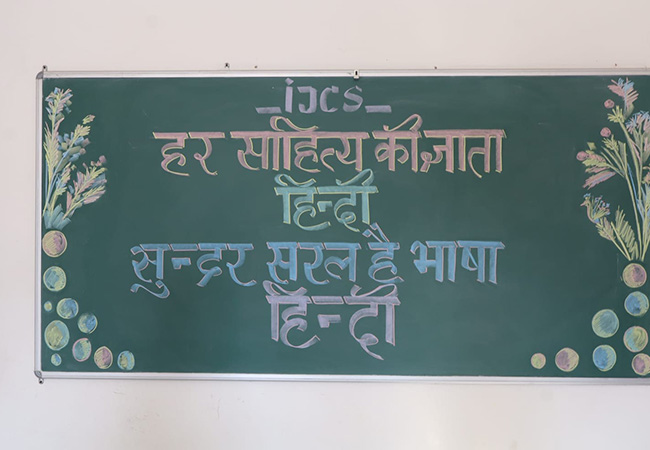 _ijcs_
हर साहित्य की ज्ञाता
हिन्दी
सुन्दर सरल है भाषा
हिन्दी